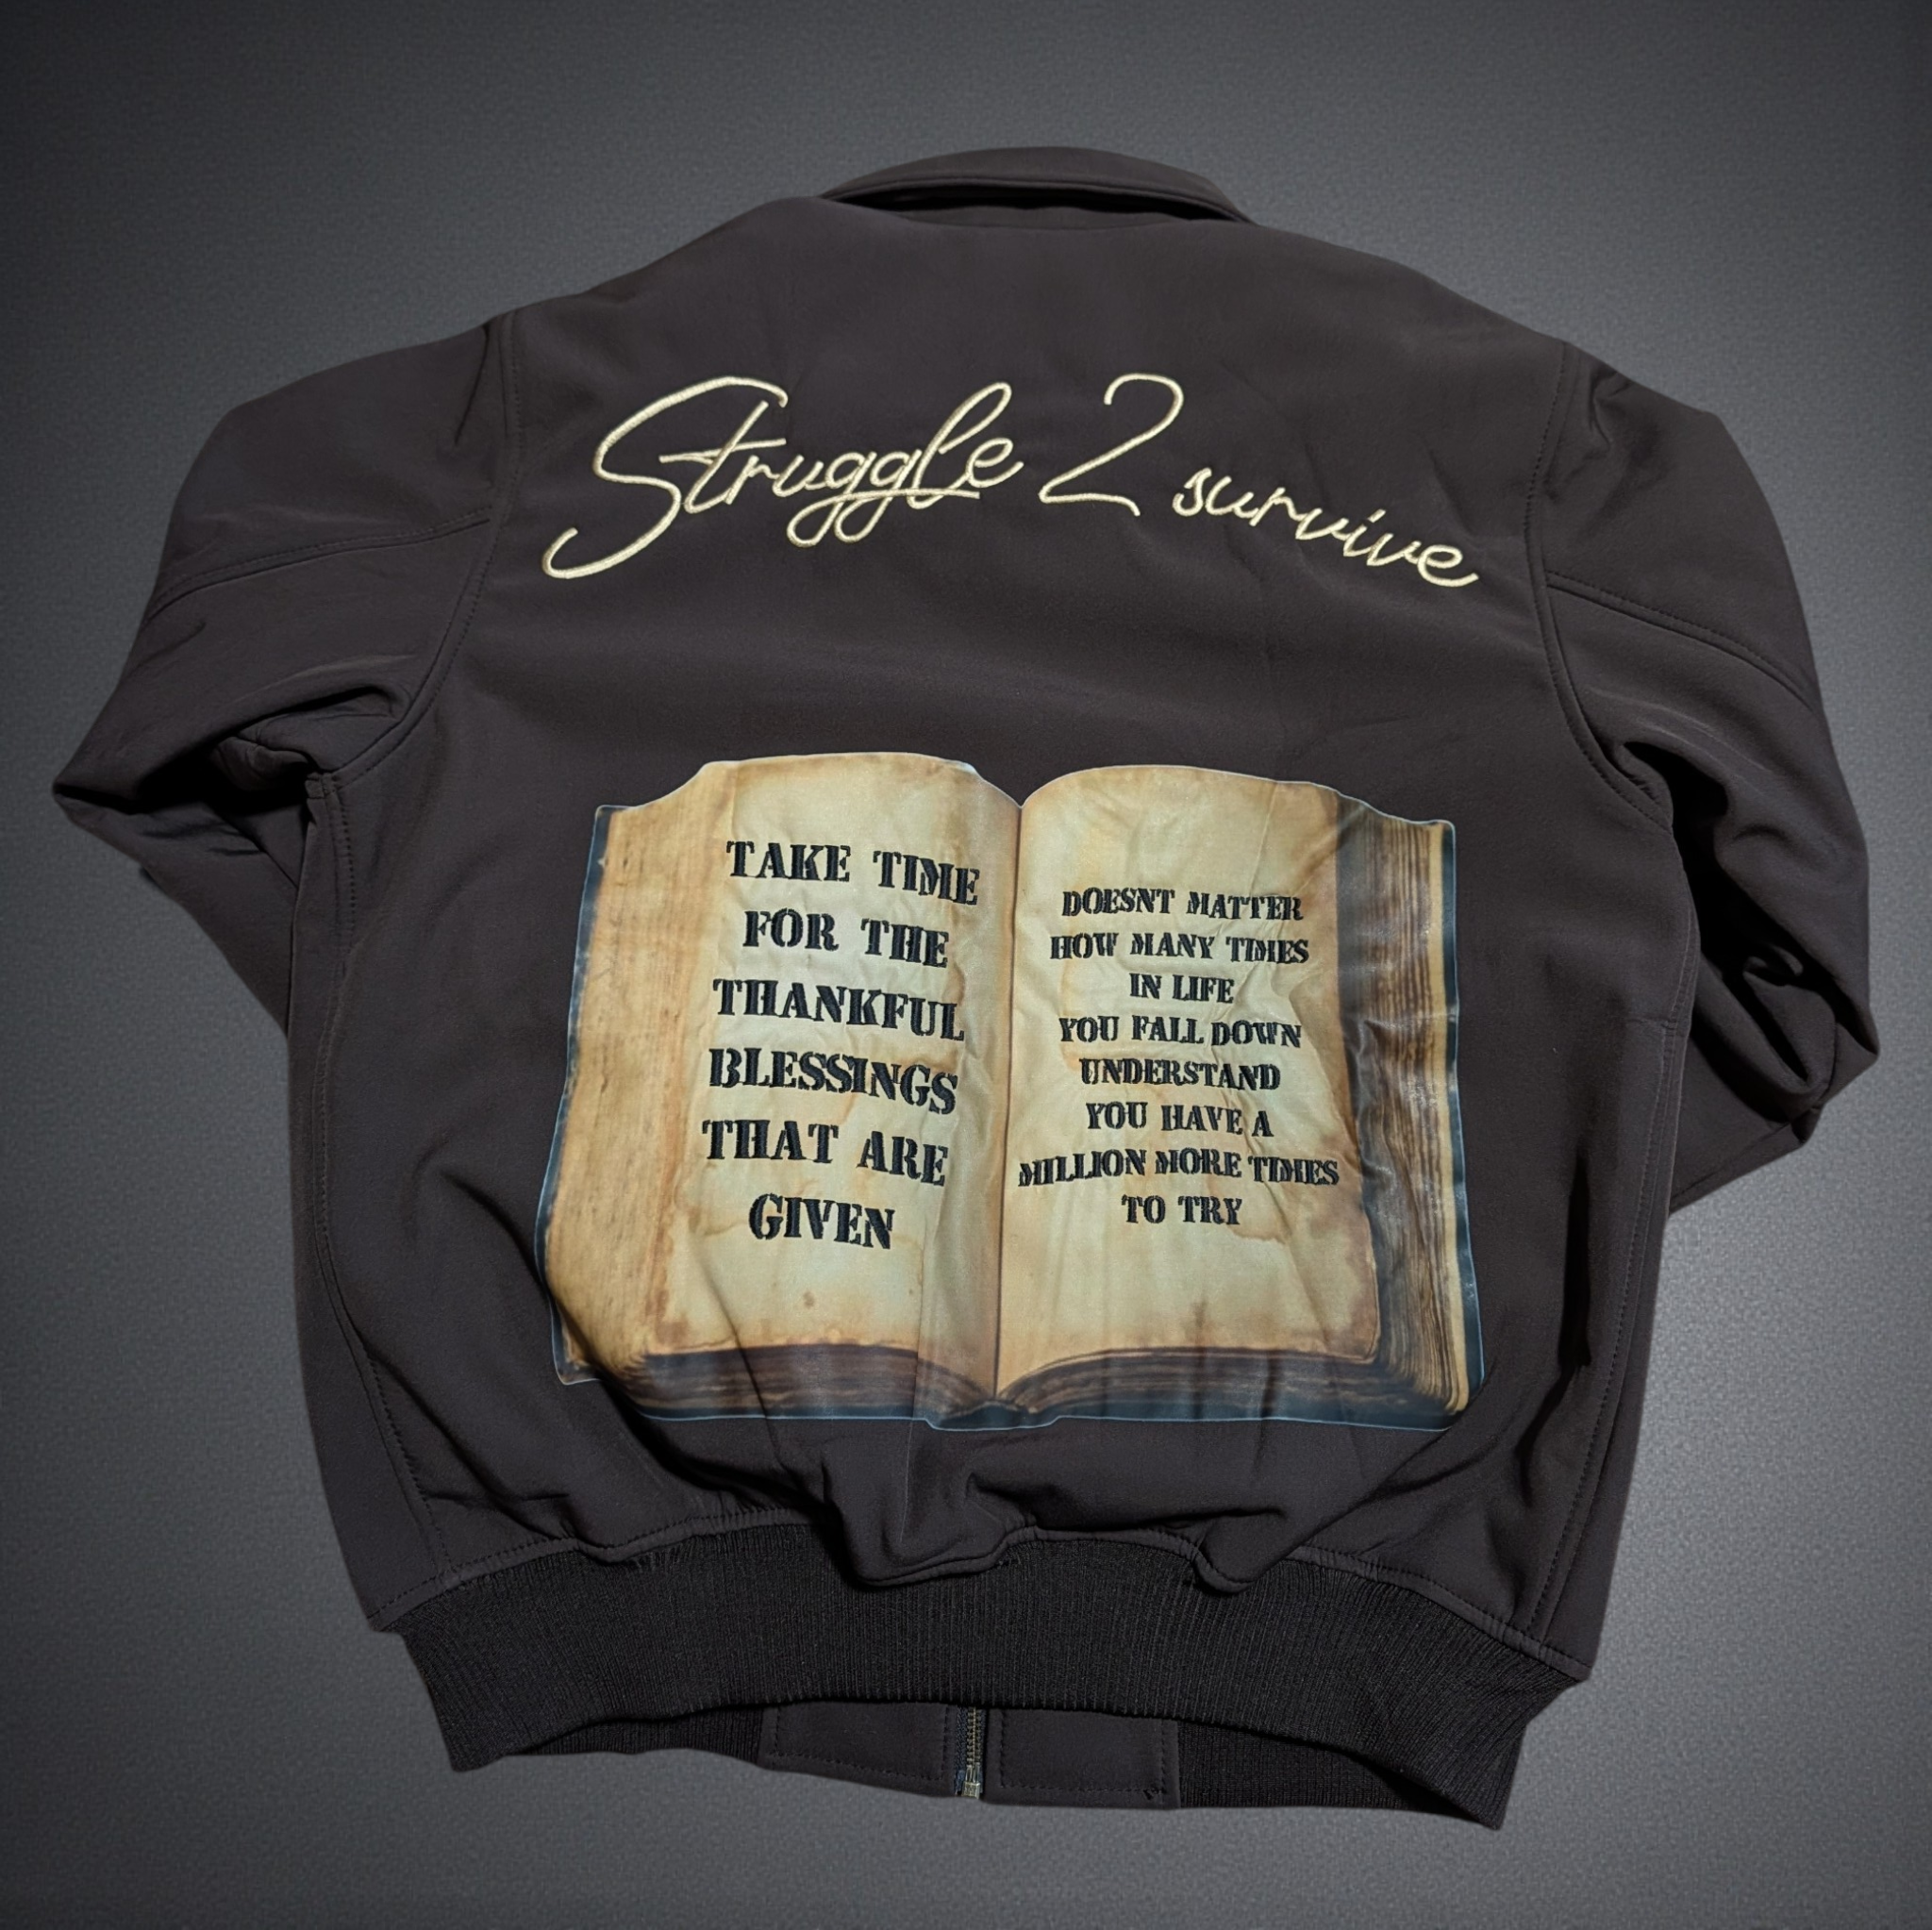 Struggle 2 survive
TAKE TIME
FOR THE
THANKFUL
BLESSINGS
THAT ARE
GIVEN
DOESNT MATTER
HOW MANY TIMES
IN LIFE
YOU FALL DOWN
UNDERSTAND
YOU HAVE A
MILLION MORE TIMES
TO TRY